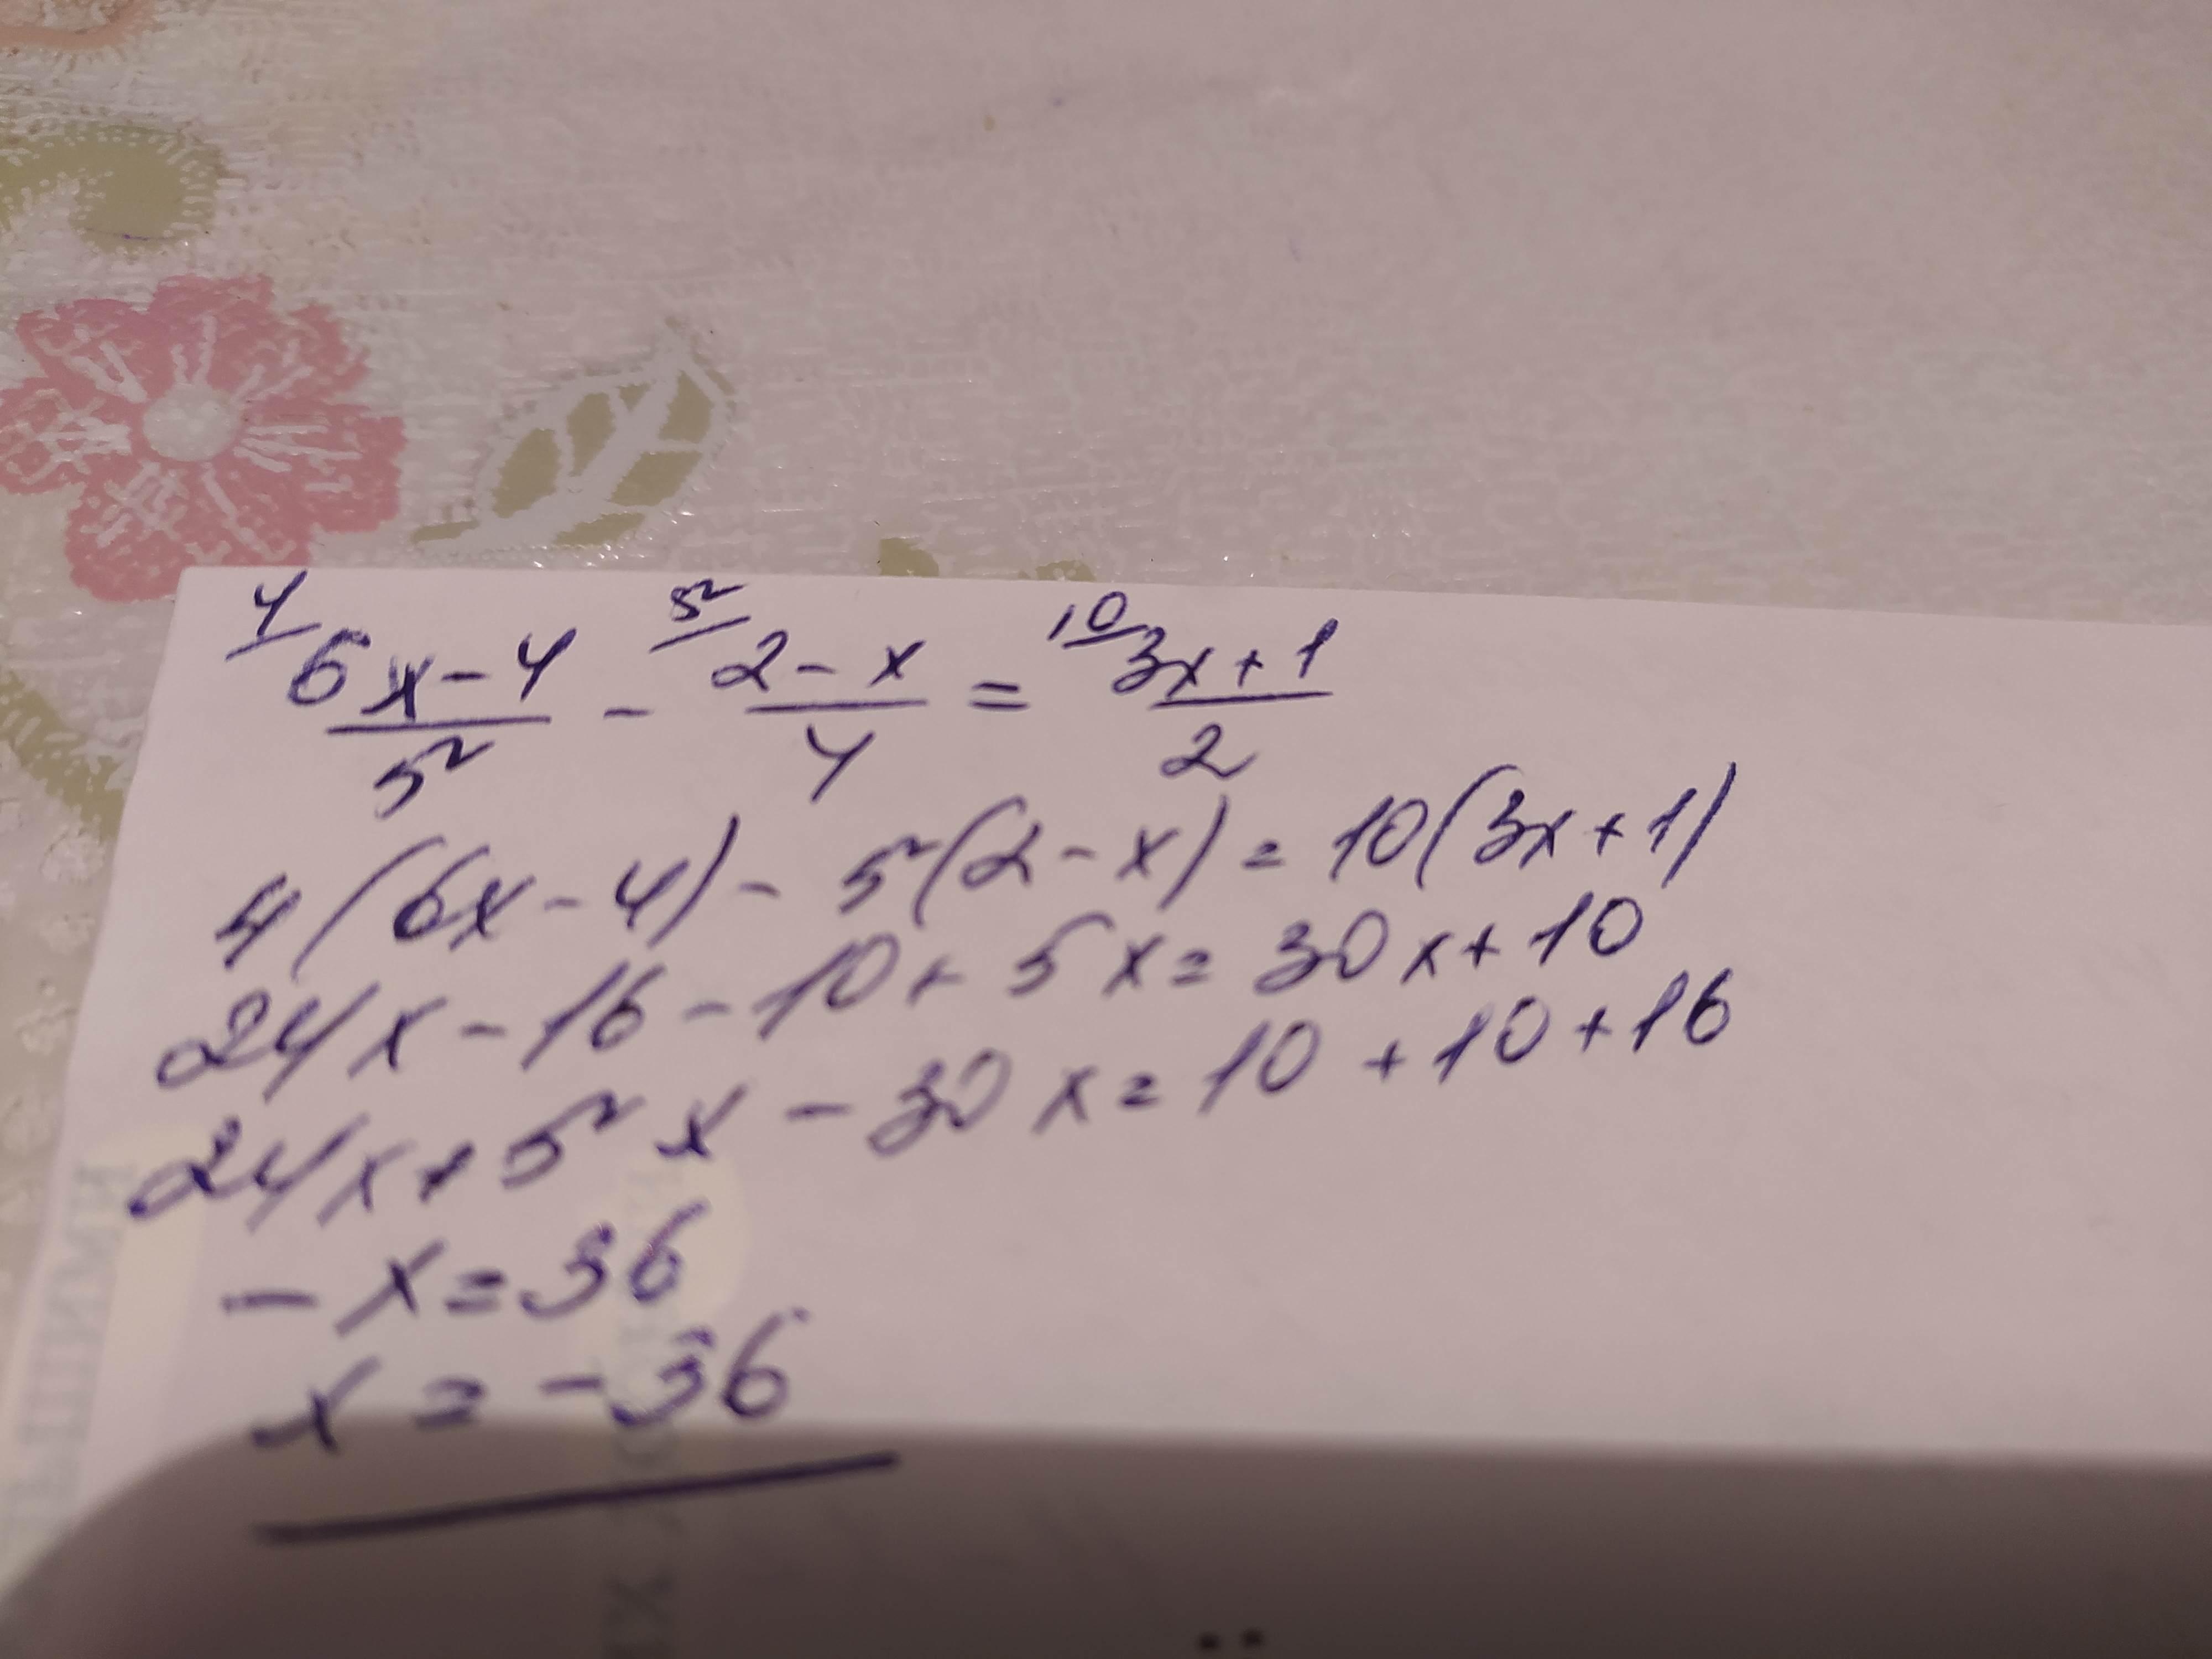 4/ 6x-4/5 - 5/ 2-x/4 = 10/ 3x+1/2
4(6x-4) - 5(2-x) = 10(3x+1)
24x-16-10+5x=30x+10
24x+5x-30x=10+10+16
-x=36
x=-36